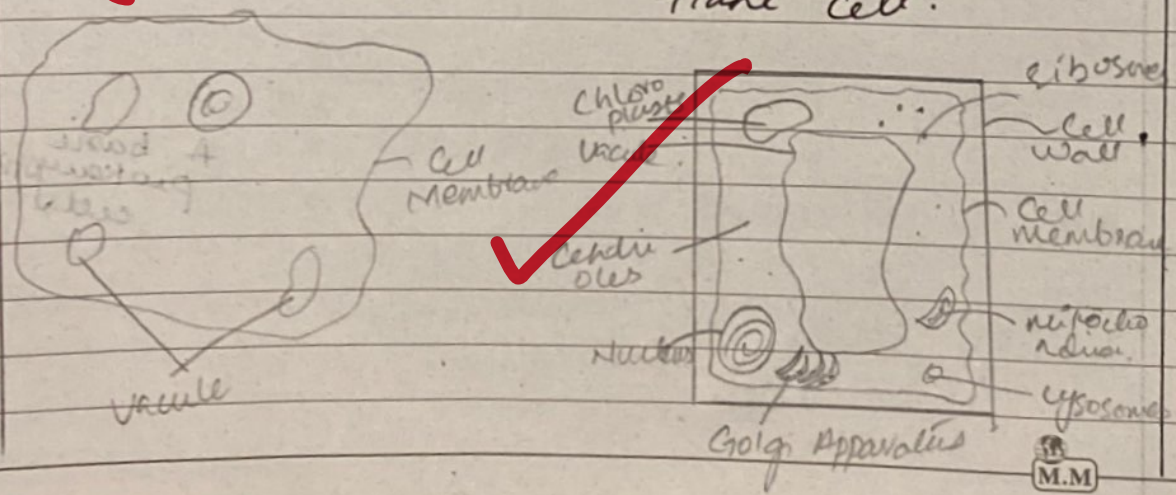 Plant cell.
Cell
Membrane
Vacule
Chloro
plasts
Vacule
Cendri
oles
Nucleus
Golgi Apparatus
Ribosome
Cell
Wall
Cell
membran
mitocho
ndria.
Lysosome
M.M